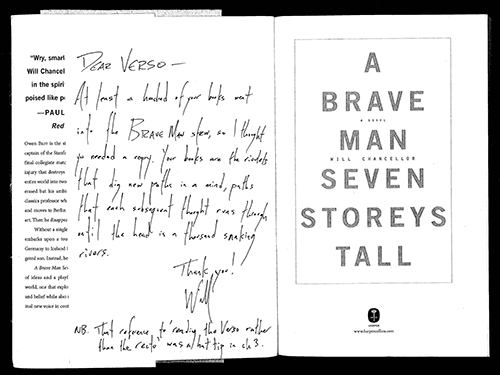 "Wry, smart
Will Chancel
in the spiri
poised like p
—PAUL
Red
Owen Burr is the st
captain of the Stanfo
final collegiate matc
injury that destroys
entire world into two
erased but his ambi
classics professor wh
and moves to Berlin
art. Then he disappe
Without a single
embarks upon a tou
Germany to Iceland i
gered son. Instead, he
A Brave Man Sev
of ideas and a playf
world, one that explo
and belief while also
inal new voice in cont
DEAR VERSO —
At least a hundred of your books went
into the BRAVE MAN stew, so I thought
you needed a copy. Your books are the rivulets
that dig new paths in a mind, paths
that each subsequent thought runs through
until the head is a thousand snaking
rivers.
Thank you!
Will
NB. That reference to 'reading the Verso rather
than the recto' was a hat tip in ch 3.
A
BRAVE
A NOVEL
MAN
WILL CHANCELLOR
SEVEN
STOREYS
TALL
HARPER
www.harpercollins.com